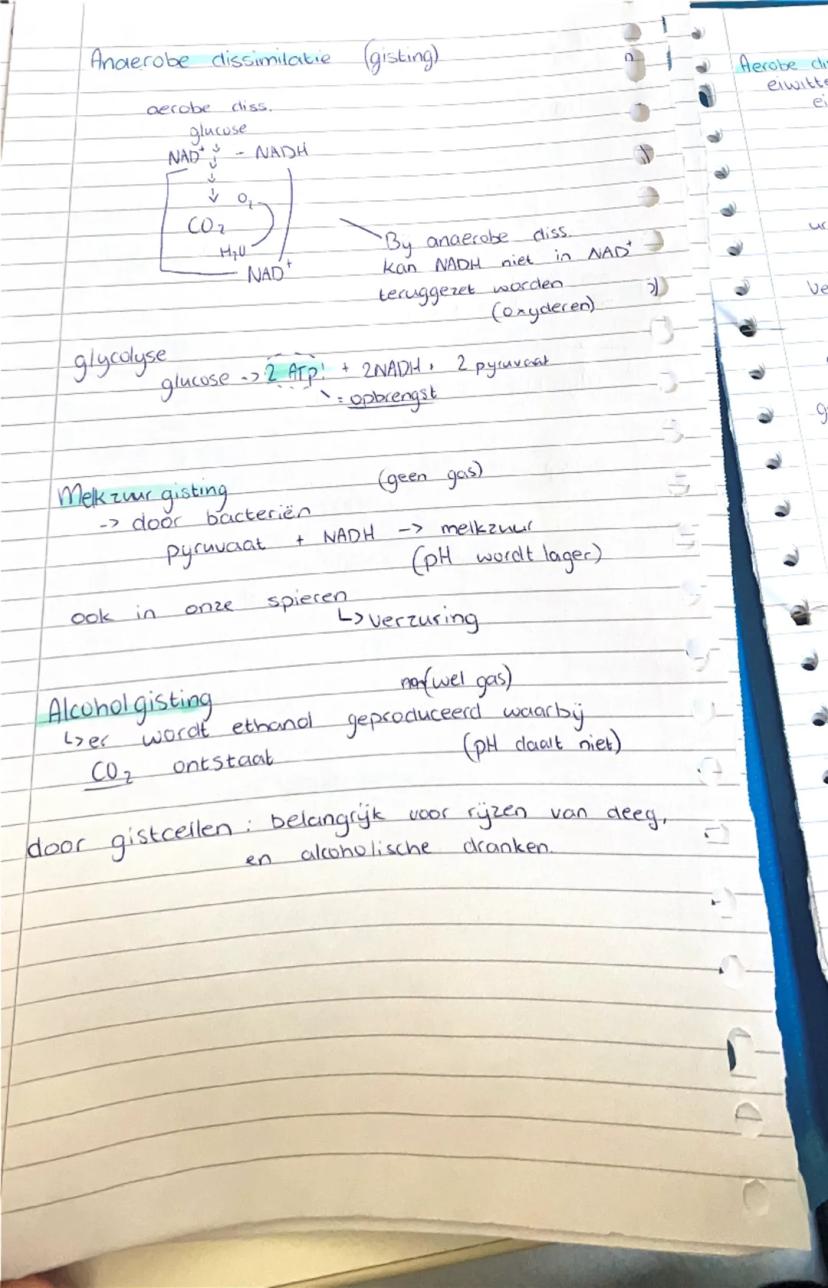 Anaerobe dissimilatie (gisting)
aerobe diss.
glucose
NAD⁺ - NADH
O₂
CO₂
H₂O
NAD⁺
By anaerobe diss.
kan NADH niet in NAD⁺
teruggezet worden
(oxyderen)
glycolyse
glucose -> 2 ATP! + 2NADH, 2 pyruvaat
= opbrengst
Melkzuurgisting (geen gas)
-> door bacteriën
pyruvaat + NADH -> melkzuur
(pH wordt lager)
ook in onze spieren
↳ verzuring
Alcoholgisting (wel gas)
↳ er wordt ethanol geproduceerd waarbij
CO₂ ontstaat (pH daalt niet)
door gistcellen: belangrijk voor rijzen van deeg,
en alcoholische dranken.
Aerobe